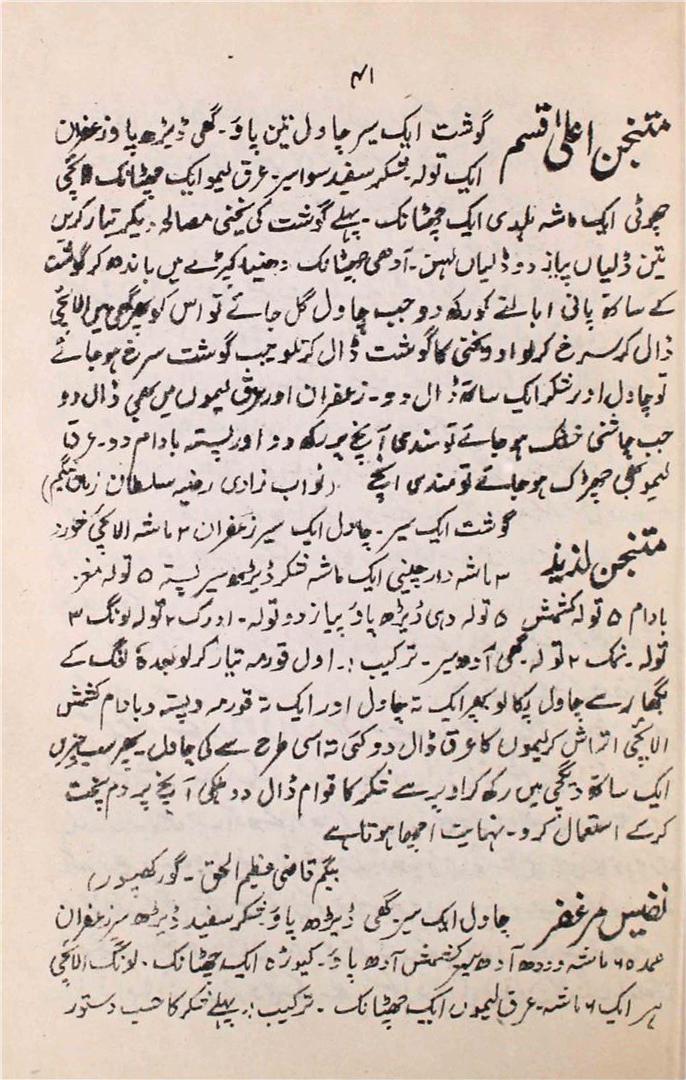 ۴۱
متنجن اعلیٰ قسم گوشت ایک سیر چاول تین پاؤ۔ گھی ڈیڑھ پاؤ زعفران
ایک تولہ۔ شکر سفید سوا سیر۔ عرق لیمو ایک چھٹانک الائچی
چھوٹی ایک ماشہ ہلدی ایک چھٹانک۔ پہلے گوشت کی یخنی مصالحہ دیکر تیار کریں
تین ڈلیاں پیاز دو ڈلیاں لہسن۔ آدھی چھٹانک دھنیہ کپڑے میں باندھ کر گوشت
کے ساتھ پانی ابالنے کو رکھ دو جب چاول گل جائے تو اس کو پھر گھی میں الائچی
ڈال کر سرخ کر لو اور یخنی کا گوشت ڈال کر تلو جب گوشت سرخ ہو جائے
تو چاول اور شکر ایک ساتھ ڈال دو۔ زعفران اور عرق لیموں میں بھی ڈال دو
جب چاشنی خشک ہو جائے تو مندی آنچ پر رکھ دو اور پستہ بادام دو۔ عرق
لیمو بھی چھڑک ہو جائے تو مندی آنچ (نواب زادی رضیہ سلطان زمانی بیگم)
متنجن لذیذ گوشت ایک سیر۔ چاول ایک سیر زعفران ۲ ماشہ الائچی خورد
۳ ماشہ دارچینی ایک ماشہ شکر ڈیڑھ سیر پستہ ۵ تولہ مغز
بادام ۵ تولہ کشمش ۵ تولہ دہی ڈیڑھ پاؤ پیاز دو تولہ۔ ادرک ۲ تولہ لونگ ۳
تولہ۔ نمک ۲ تولہ۔ گھی آدھ سیر۔ ترکیب :۔ اول قورمہ تیار کر لو بعدہٗ لونگ کے
بگھار سے چاول پکا لو پھر ایک تہ چاول اور ایک تہ قورمہ و پستہ و بادام کشمش
الائچی اتراش کر لیموں کا عرق ڈال دو کئی تہ اسی طرح سے کی چاول۔ پھر سب چیزیں
ایک ساتھ دیگچی میں رکھ کر اوپر سے شکر کا قوام ڈال دو ہلکی آنچ پر دم پخت
کرکے استعمال کرو۔ نہایت اچھا ہوتا ہے
بیگم قاضی عظیم الحق۔ گورکھپور)
نفیس مزعفر چاول ایک سیر گھی ڈیڑھ پاؤ شکر سفید ڈیڑھ سیر زعفران
عمدہ ۶ ماشہ دودھ آدھ سیر کشمش آدھ پاؤ۔ کیوڑہ ایک چھٹانک۔ لونگ الائچی
ہر ایک ۶ ماشہ۔ عرق لیموں ایک چھٹانک۔ ترکیب :۔ پہلے شکر کا حسب دستور